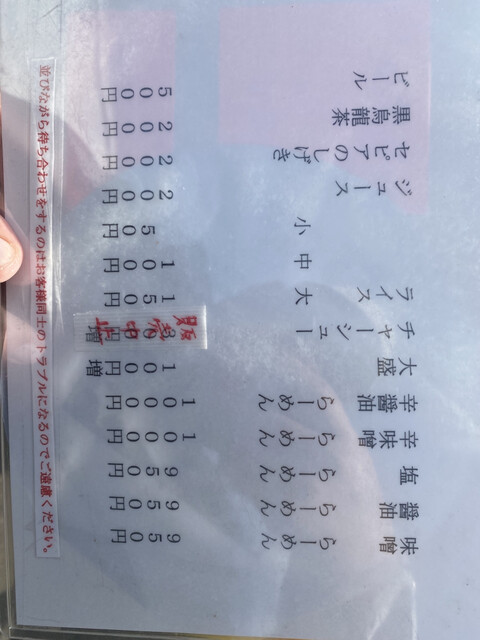 味噌らーめん 950円
醤油らーめん 950円
塩らーめん 950円
辛味噌らーめん 1000円
辛醤油らーめん 1000円
大盛 100円増
チャーシュー 円増
販売中止
ライス 大 150円
中 100円
小 50円
ジュース 200円
セピアのしげき 200円
黒烏龍茶 200円
ビール 500円
並びながら待ち合わせをするのはお客様同士のトラブルになるのでご遠慮ください。